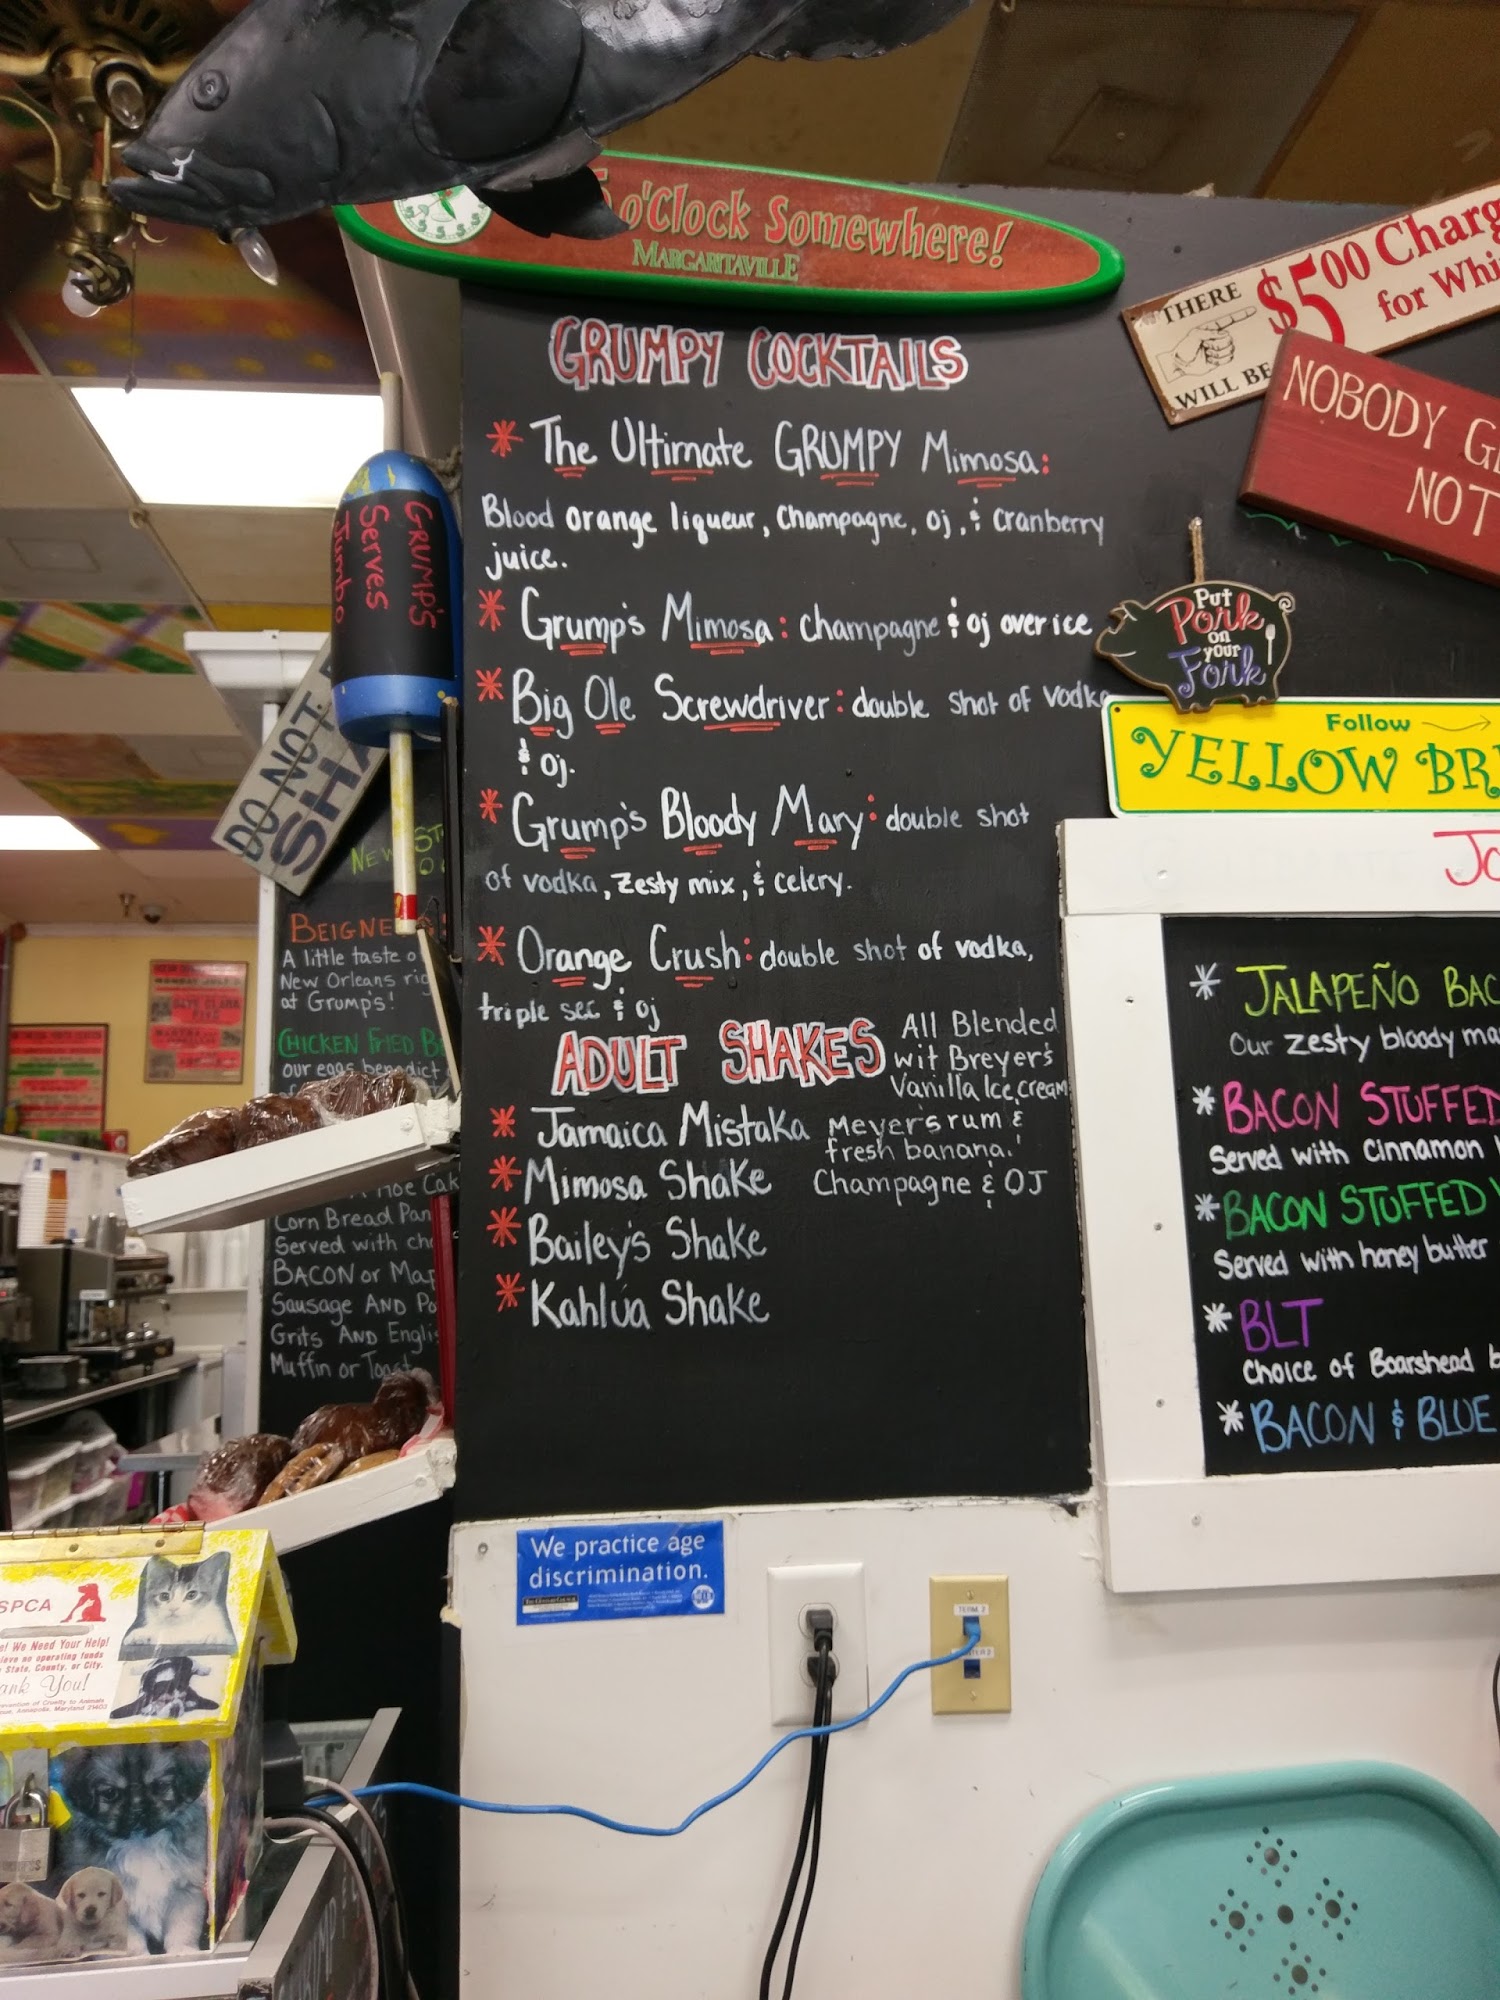 o'Clock Somewhere!
MARGARITAVILLE
THERE
WILL BE
$5.00 Charg
for Whi
NOBODY G
NOT
GRUMPY COCKTAILS
* The Ultimate GRUMPY Mimosa:
Blood orange liqueur, Champagne, OJ, & Cranberry
juice.
* Grump's Mimosa: champagne & oj over ice
* Big Ole Screwdriver: double shot of vodka
& OJ.
* Grump's Bloody Mary: double shot
of vodka, zesty mix, & celery.
* Orange Crush: double shot of vodka,
triple sec & OJ
ADULT SHAKES
All Blended
wit Breyer's
Vanilla Ice cream
* Jamaica Mistaka Meyer's rum &
fresh banana!
* Mimosa Shake Champagne & OJ
* Bailey's Shake
* Kahlúa Shake
PUT
Pork
on
your
Fork
Follow
YELLOW BR
Jo
* JALAPEÑO BAC
Our zesty bloody ma
* BACON STUFFED
Served with Cinnamon
* BACON STUFFED
Served with honey butter
* BLT
Choice of Boarshead
* BACON & BLUE
GRUMP'S
Serves
Jumbo
DO NOT
SHA
BEIGNE
A little taste o
New Orleans rig
at Grump's!
CHICKEN FRIED B
our eggs benedict
Hoe Cak
Corn Bread Pan
Served with ch
BACON or Ma
Sausage AND Po
Grits AND Engli
Muffin or Toast
We practice age
discrimination.
TERM. 2
SPCA
We Need Your Help!
no operating funds
State, County, or City.
ank You!
Annapolis, Maryland 21403